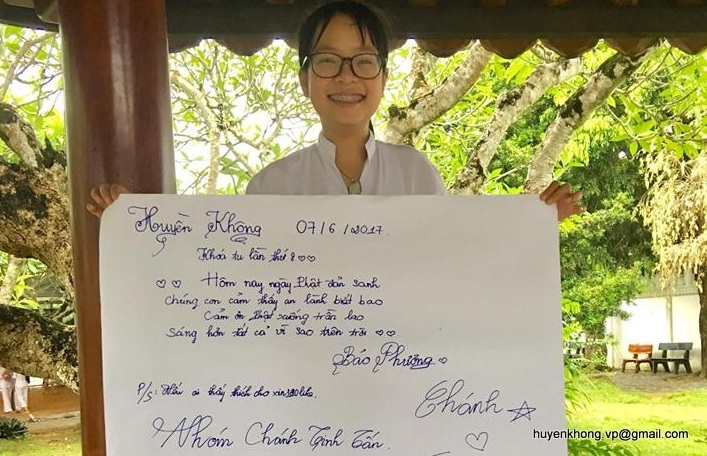 Huyền Không 07/6/2017.
Khoá tu lần thứ 2 ♡♡
♡ ♡ Hôm nay ngày Phật đản sanh
Chúng con cảm thấy an lành biết bao
Cảm ơn Phật xuống trần lao
Sáng hơn tất cả vì sao trên trời ♡♡
Bảo Phương
P/s: Nếu ai thấy thích cho xin 100 like.
Chánh ☆
Nhóm Chánh Tinh Tấn.
huyenkhong.vp@gmail.com